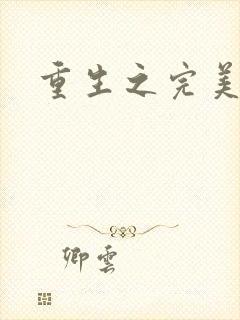 重生之完美
卿雲